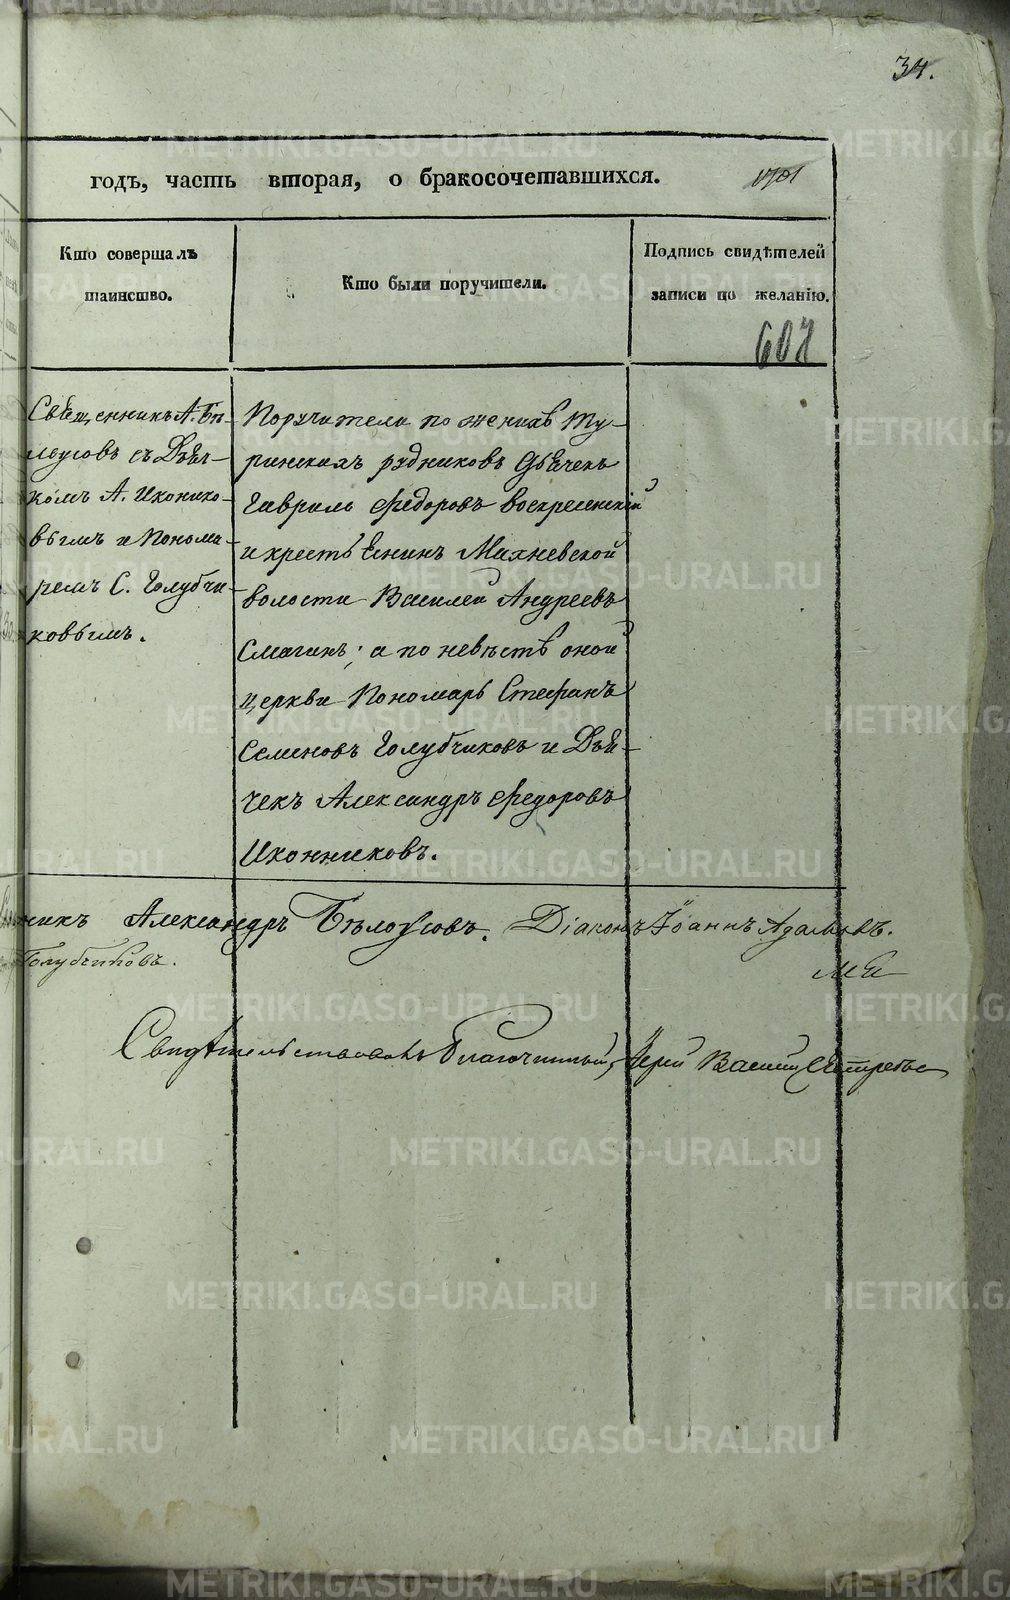 34.
годъ, часть вторая, о бракосочетавшихся.
Кто совершалъ
таинство.
Кто были поручители.
Подпись свидѣтелей
записи по желанію.
607
Священникъ А. Бѣ-
лоусовъ съ Дьяч-
комъ А. Иконико-
вымъ и Понома-
ремъ С. Голубчи-
ковымъ.
Поручители по женихѣ Ту-
ринскихъ рудниковъ Дьячекъ
Гаврилъ Федоровъ Воскресенскій
и крестьянинъ Махневской
волости Василей Андреевъ
Смагинъ; а по невѣстѣ оной
церкви Пономарь Стефанъ
Семеновъ Голубчиковъ и Дья-
чекъ Александръ Федоровъ
Иконниковъ.
никъ Александръ Бѣлоусовъ. Діаконъ Іоаннъ Адамовъ.
Голубчиковъ.
Свидѣтельствовалъ Благочинный, Іерей Василій
METRIKI.GASO-URAL.RU